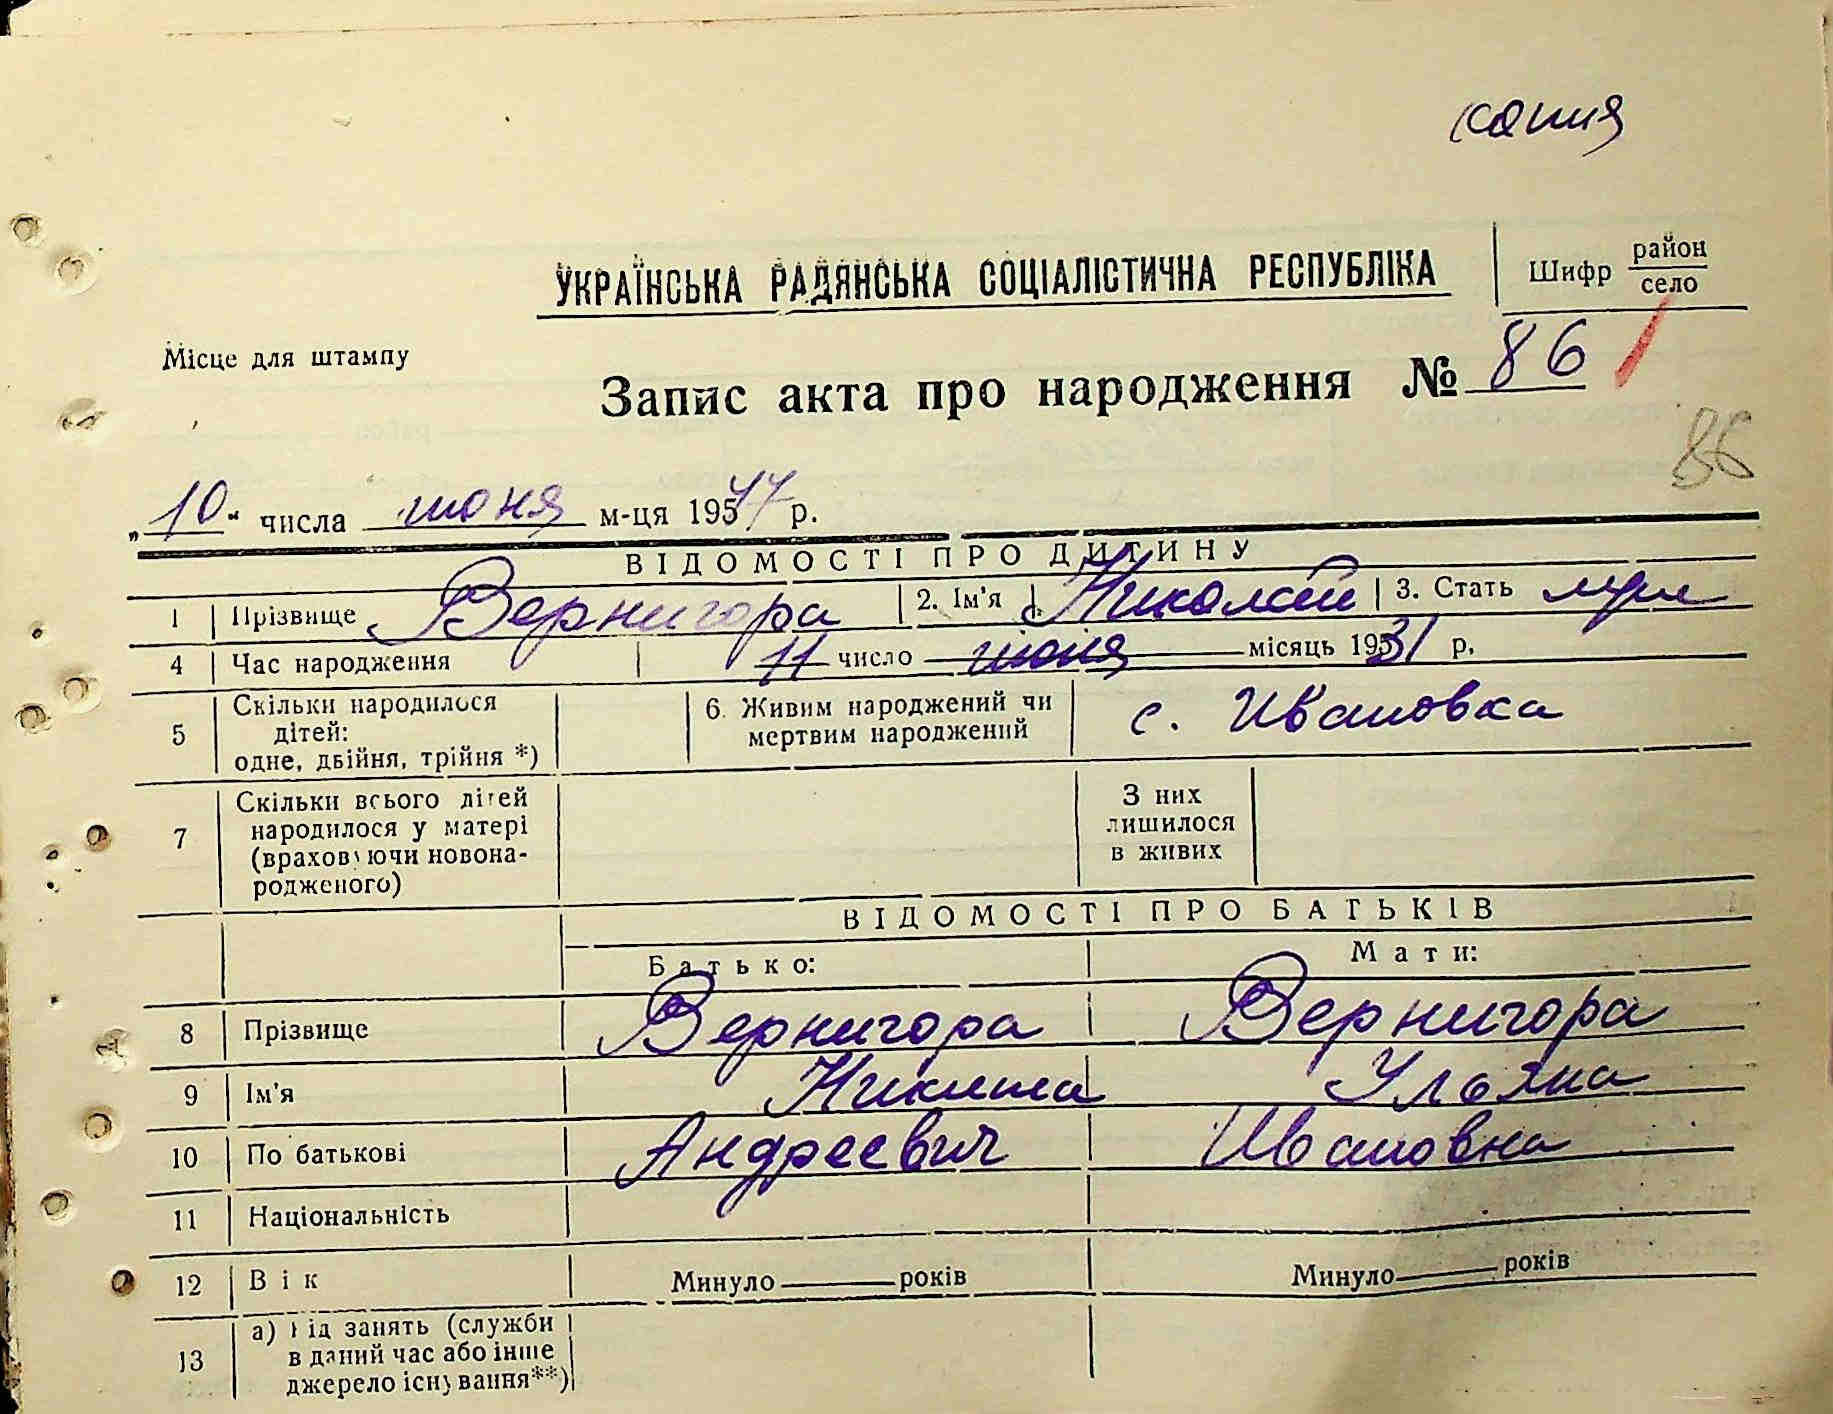 копия
УКРАЇНСЬКА РАДЯНСЬКА СОЦІАЛІСТИЧНА РЕСПУБЛІКА
Шифр район
село
Місце для штампу
Запис акта про народження № 86
86
„10“ числа июня м-ця 195 р.
ВІДОМОСТІ ПРО ДИТИНУ
1 Прізвище Вернигора 2. Ім'я Николай 3. Стать муж
4 Час народження 11 число июня місяць 1931 р.
5 Скільки народилося дітей: одне, двійня, трійня *) 6. Живим народжений чи мертвим народжений с. Ивановка
7 Скільки всього дітей народилося у матері (враховуючи новонародженого) З них лишилося в живих
ВІДОМОСТІ ПРО БАТЬКІВ
Батько: Мати:
8 Прізвище Вернигора Вернигора
9 Ім'я Никита Ульяна
10 По батькові Андреевич Ивановна
11 Національність
12 Вік Минуло років Минуло років
13 а) Від занять (служби в даний час або інше джерело існування**)